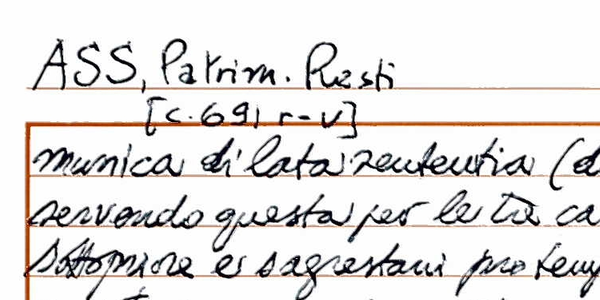 ASS, Patrim. Resti
[c. 691 r-v]
munica di lata sententia (d
servendo questa per le tre ca
sottopriore e sagrestani pro temp